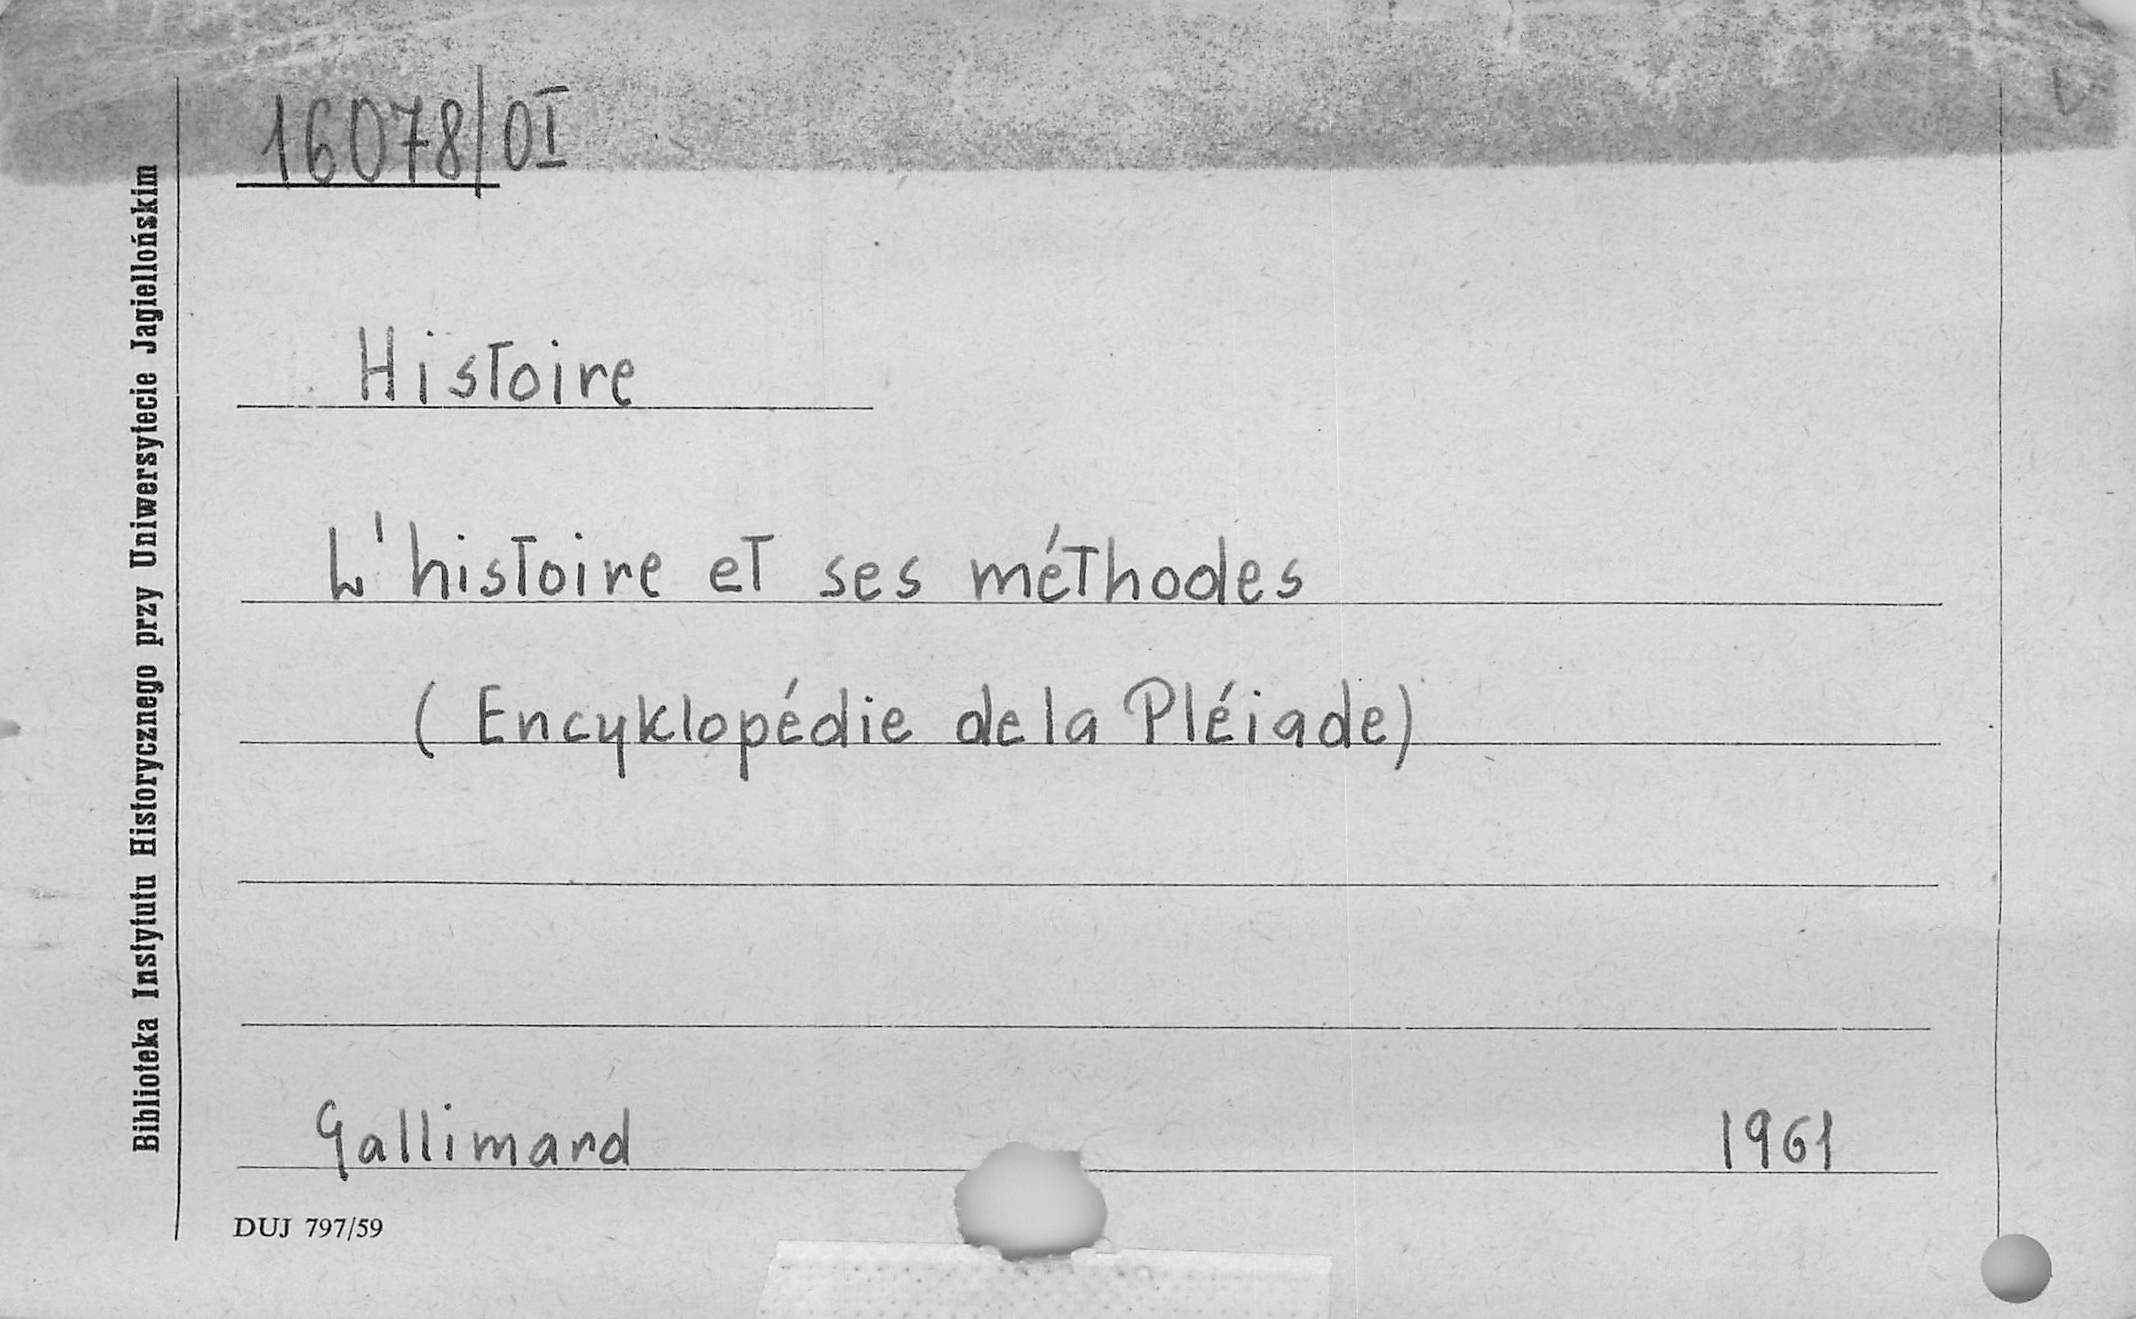 16078/OI
Histoire
L'histoire et ses méthodes
(Encyklopédie de la Pléiade)
Gallimard 1961
DUJ 797/59
Biblioteka Instytutu Historycznego przy Uniwersytecie Jagiellońskim